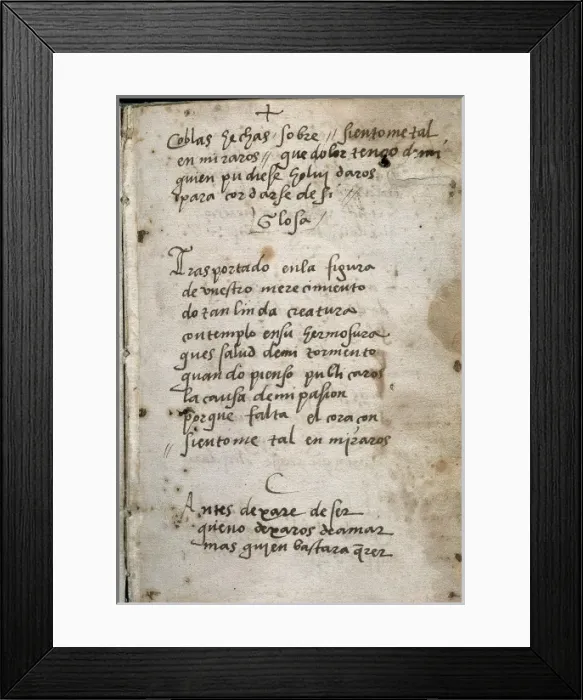 Coblas hechas sobre // sientome tal
en miraros // que dolor tengo de mi
quien pudiese holvidaros
para cordarse de si //
Glosa /
Trasportado enla figura
de vuestro merecimiento
do tan linda creatura
contemplo ensu hermosura
ques salud demi tormento
quando pienso publicaros
la causa demi pasion
porque falta el coraçon
// sientome tal en miraros
C
Antes dexare de ser
queno dexaros deamar
mas quien bastara qrer